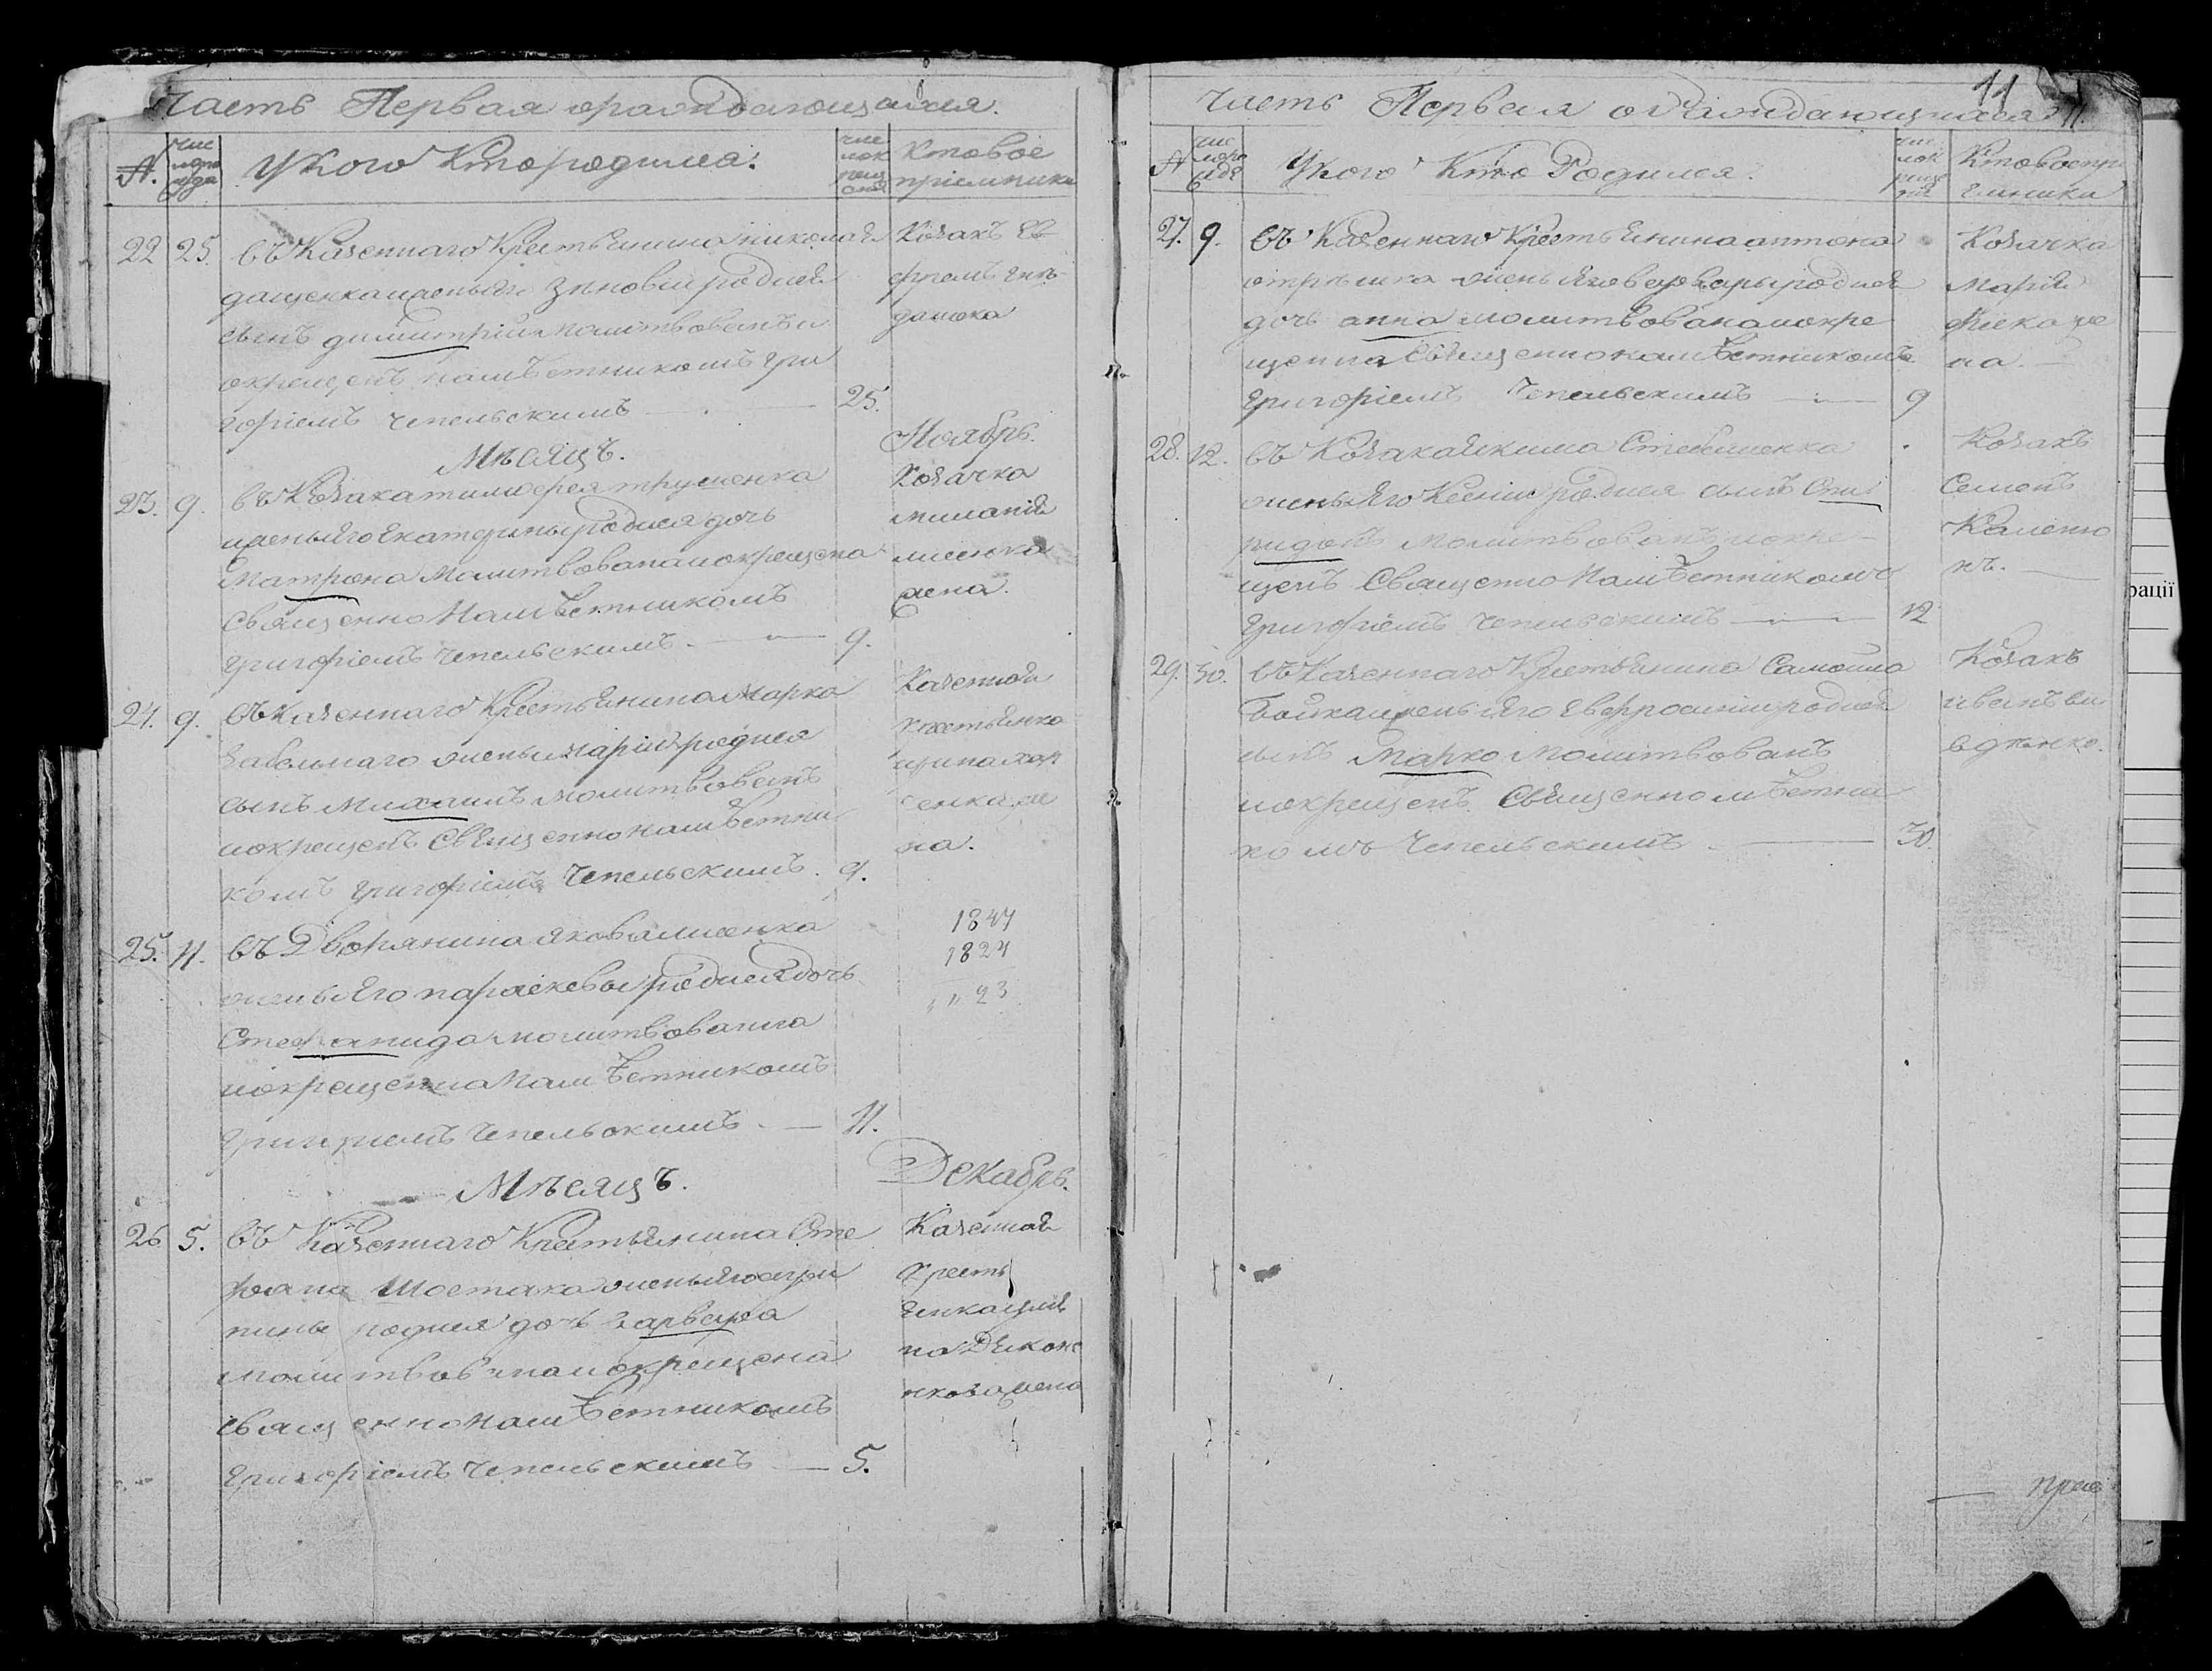 Часть Первая ораождающихся.
№.
чис
ло ро
жде
Укого Кто родился.
чис
ло к
рещ
ения
Кто вос
приемники
22 25. въ Казеннаго Крестьянина николая
дащенка ижены его Зиновіи родился
сынъ димитрій молитвованъ и
окрещенъ намѣстникомъ Гри
горіемъ Чепельскимъ 25.
Козакъ Ев
фремъ
Мѣсяцъ. Ноябрь.
23. 9. въ Козака тимофея трушенка
ижены его Екатерины родися дочь
Матрона Молитвована иокрещена
Священно Намѣстникомъ
Григоріемъ Чепельскимъ. 9.
Козачка
миланія
лисенко
жена.
24. 9. въ Казеннаго Крестьянина Марка
Забельнаго ижены маріи родися
сынъ Михаилъ молитвованъ
иокрещенъ Священнонамѣстни
комъ Григоріемъ Чепельскимъ. 9.
Казенной
крестьянко
ирина хар
ченка же
на.
25. 11. въ Дворянина якова лисенка
ижены Его параскевы родися дочь
Стефанида молитвована
иокрещенна Намѣстникомъ
Григориемъ Чепельскимъ. 11.
1847
1824
23
Мѣсяцъ. Декабрь.
26 5. въ Казеннаго Крестьянина Сте
фана Шостака ижены его агри
пины родися дочь Варвара
молитвована иокрещена
священно Намѣстникомъ
Григоріемъ Чепельскимъ 5.
Казенной
крестья
жена
Часть Первая о Раождающихся 11.
11
№
чис
ло ро
жде
Укого Кто Родился.
чис
ло к
реще
нія
Кто воспри
емники
27. 9. въ Казеннаго Крестьянина антона
ижены его варвары родися
дочь анна молитвована иокре
щенна Священнонамѣстникомъ
Григоріемъ Чепельскимъ 9
Козачка
Марія
же
на.
28. 12. въ Козака якима Стеблиенка
ижены его Ксеніи родися сынъ Спи
ридонъ молитвованъ иокре
щенъ Священно Намѣстникомъ
Григоріемъ Чепельскимъ 12
Козакъ
Семенъ
29. 30. въ Казеннаго Крестьянина Самойла
Бойка ижены его Евфросиніи родися
сынъ Марко Молитвованъ
иокрещенъ Священномѣстни
комъ Чепельскимъ. 30.
Козакъ
иванъ
рації